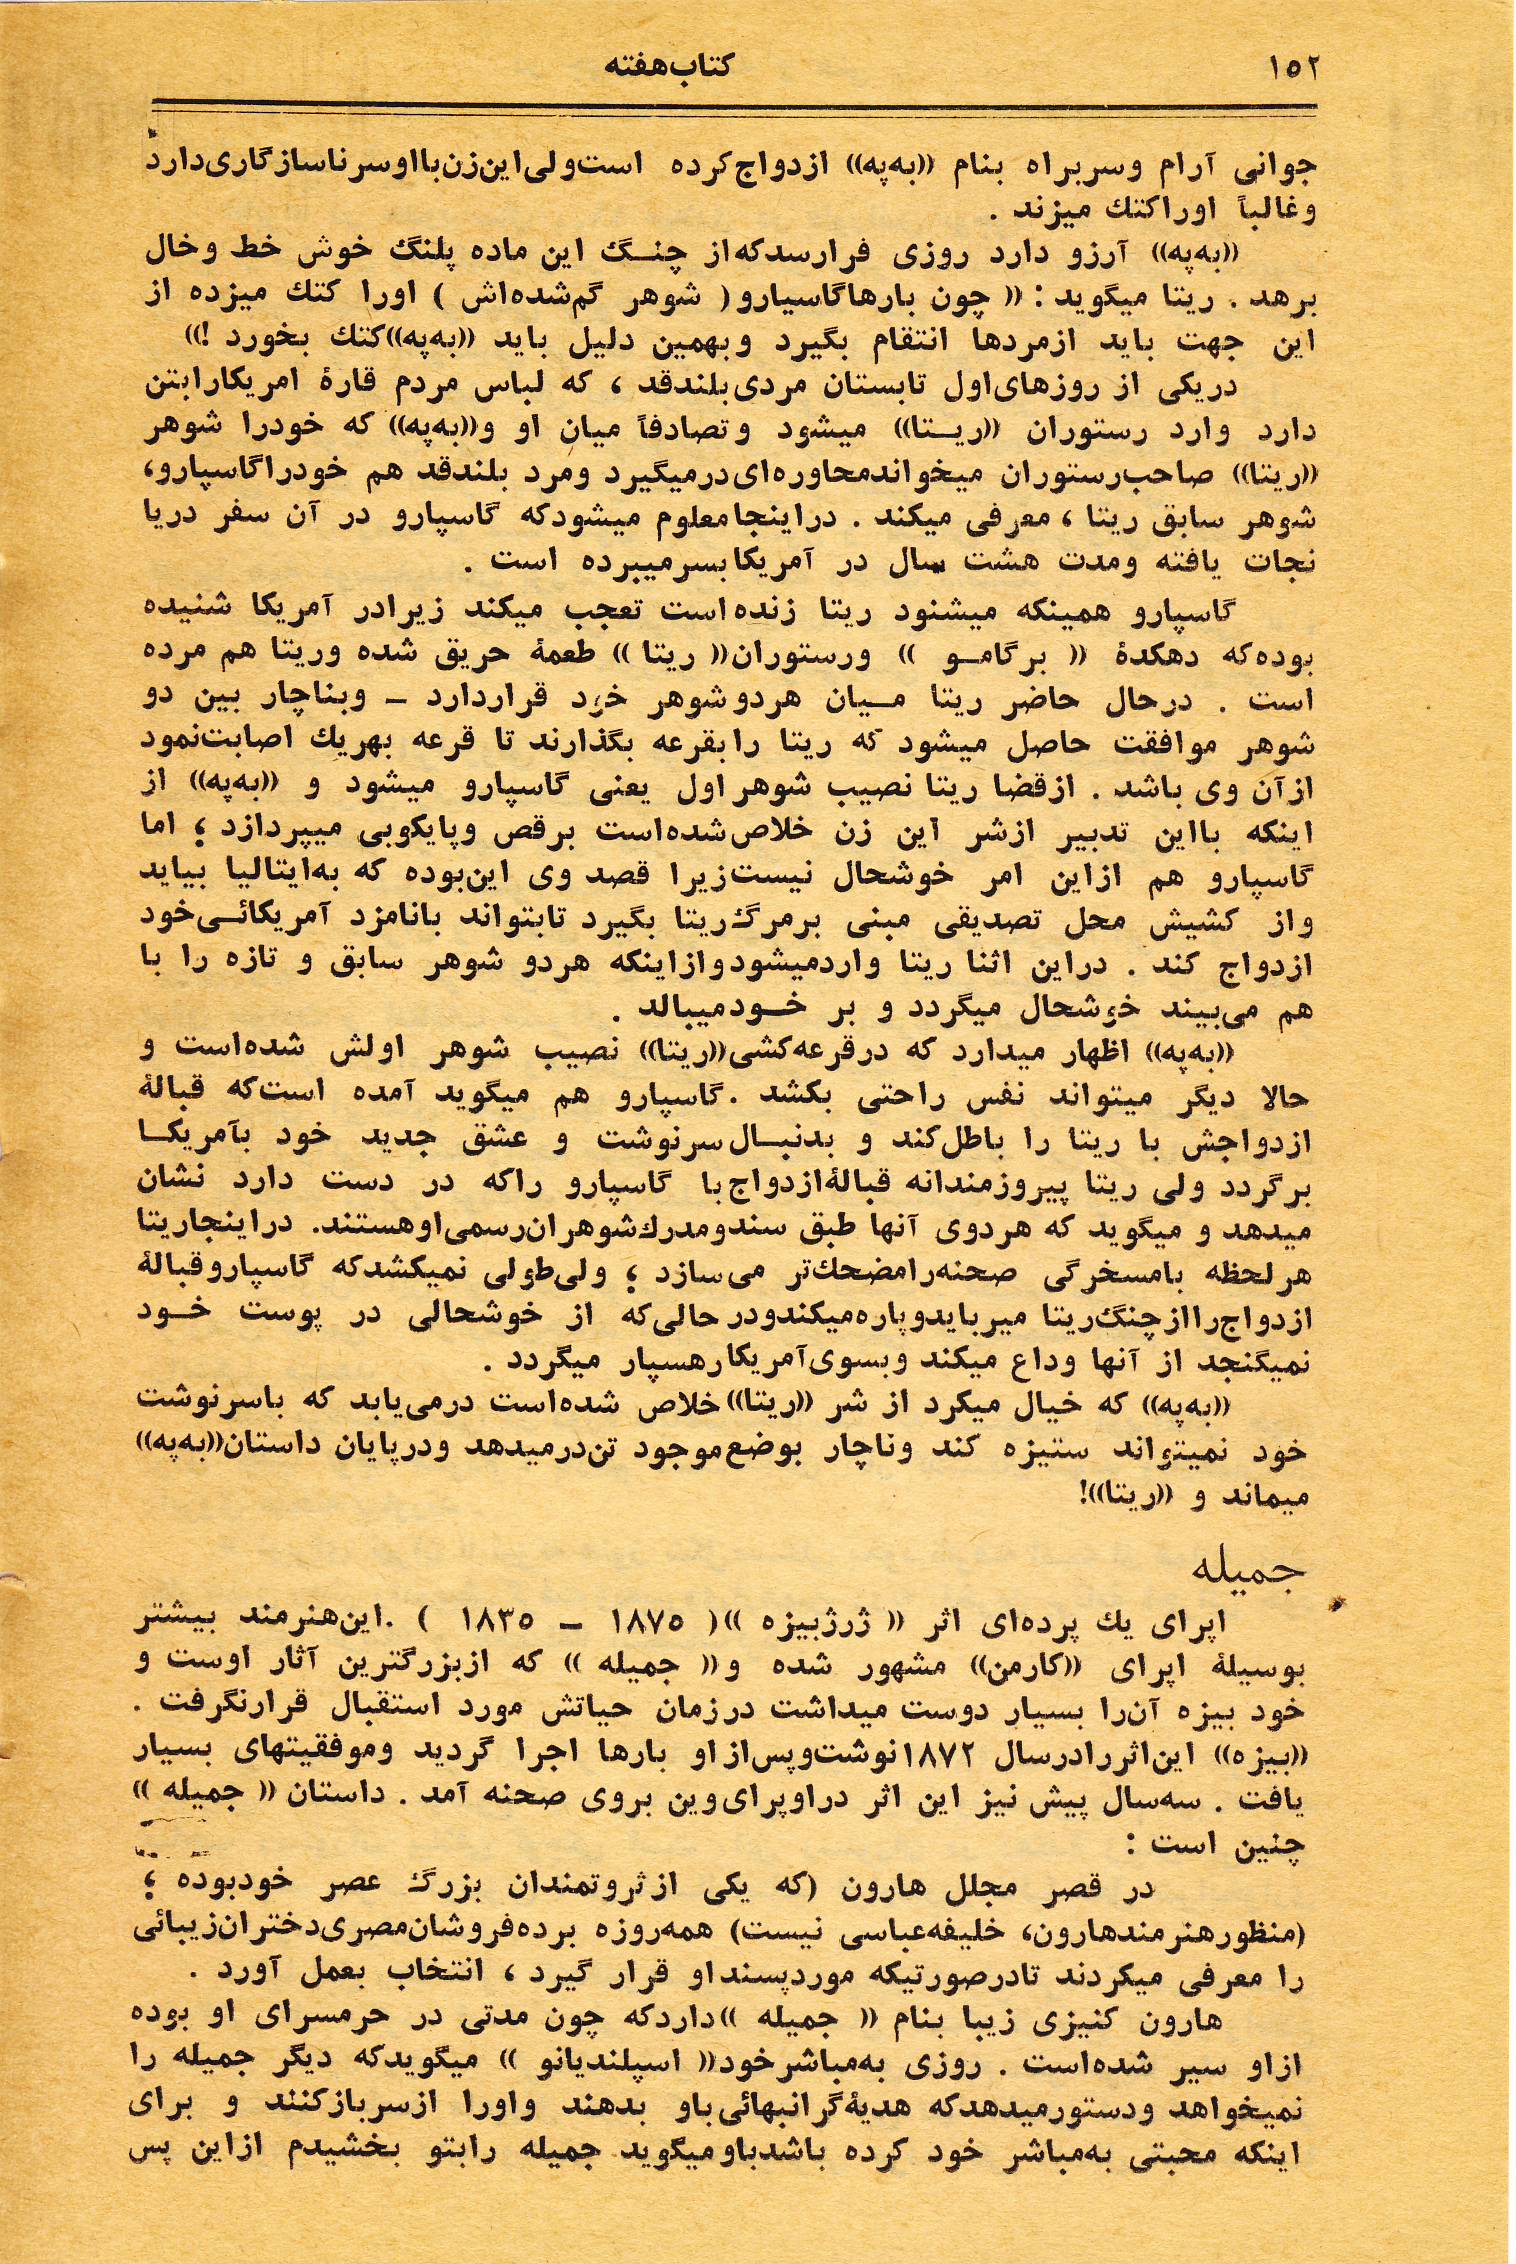 ۱۵۲
کتاب هفته
جوانی آرام وسربراه بنام ((به‌په)) ازدواج کرده است ولی این زن با او سرناسازگاری دارد
وغالباً اورا کتك میزند .
((به‌په)) آرزو دارد روزی فرارسد که از چنـگ این ماده پلنگ خوش خط وخال
برهد . ریتا میگوید : (( چون بارها گاسپارو ( شوهر گم‌شده‌اش ) اورا کتك میزده از
این جهت باید ازمردها انتقام بگیرد وبهمین دلیل باید ((به‌په)) کتك بخورد !))
دریکی از روزهای اول تابستان مردی بلندقد ، که لباس مردم قارهٔ امریکا رابتن
دارد وارد رستوران ((ریـتا)) میشود وتصادفاً میان او و((به‌په)) که خودرا شوهر
((ریتا)) صاحب رستوران میخواند محاوره‌ای درمیگیرد ومرد بلندقد هم خودرا گاسپارو،
شوهر سابق ریتا ، معرفی میکند . دراینجا معلوم میشود که گاسپارو در آن سفر دریا
نجات یافته ومدت هشت سال در آمریکا بسرمیبرده است .
گاسپارو همینکه میشنود ریتا زنده است تعجب میکند زیرا در آمریکا شنیده
بوده که دهکدهٔ (( برگامـو )) ورستوران (( ریتا )) طعمهٔ حریق شده وریتا هم مرده
است . درحال حاضر ریتا مـیان هردو شوهر خود قراردارد ـ وبناچار بین دو
شوهر موافقت حاصل میشود که ریتا را بقرعه بگذارند تا قرعه بهریك اصابت نمود
ازآن وی باشد . ازقضا ریتا نصیب شوهر اول یعنی گاسپارو میشود و ((به‌په)) از
اینکه بااین تدبیر ازشر این زن خلاص شده‌است برقص وپایکوبی میپردازد ؛ اما
گاسپارو هم ازاین امر خوشحال نیست زیرا قصد وی این‌بوده که به‌ایتالیا بیاید
واز کشیش محل تصدیقی مبنی برمرگ ریتا بگیرد تابتواند بانامزد آمریکائـی خود
ازدواج کند . دراین اثنا ریتا وارد میشود وازاینکه هردو شوهر سابق و تازه را با
هم می‌بیند خوشحال میگردد و بر خـود میبالد .
((به‌په)) اظهار میدارد که درقرعه‌کشی ((ریتا)) نصیب شوهر اولش شده‌است و
حالا دیگر میتواند نفس راحتی بکشد . گاسپارو هم میگوید آمده است که قبالهٔ
ازدواجش با ریتا را باطل کند و بدنبـال سرنوشت و عشق جدید خود بآمریکـا
برگردد ولی ریتا پیروزمندانه قبالهٔ ازدواج با گاسپارو را که در دست دارد نشان
میدهد و میگوید که هردوی آنها طبق سند ومدرك شوهران رسمی اوهستند. دراینجا ریتا
هرلحظه بامسخرگی صحنه را مضحك‌تر می‌سازد ؛ ولی طولی نمیکشد که گاسپارو قبالهٔ
ازدواج را ازچنگ ریتا میرباید وپاره میکند ودر حالی که از خوشحالی در پوست خـود
نمیگنجد از آنها وداع میکند وبسوی آمریکا رهسپار میگردد .
((به‌په)) که خیال میکرد از شر ((ریتا)) خلاص شده‌است درمی‌یابد که باسرنوشت
خود نمیتواند ستیزه کند وناچار بوضع موجود تن‌درمیدهد ودرپایان داستان ((به‌په))
میماند و ((ریتا))!
جمیله
اپرای یك پرده‌ای اثر (( ژرژبیزه )) ( ۱۸۷۵ ـ ۱۸۳۵ ) . این هنرمند بیشتر
بوسیلهٔ اپرای ((کارمن)) مشهور شده و (( جمیله )) که ازبزرگترین آثار اوست و
خود بیزه آن‌را بسیار دوست میداشت درزمان حیاتش مورد استقبال قرارنگرفت .
((بیزه)) این اثر را درسال ۱۸۷۲ نوشت وپس‌ازاو بارها اجرا گردید وموفقیتهای بسیار
یافت . سه‌سال پیش نیز این اثر دراوپرای وین بروی صحنه آمد . داستان (( جمیله ))
چنین است :
در قصر مجلل هارون (که یکی ازثروتمندان بزرگ عصر خودبوده ؛
(منظور هنرمند هارون، خلیفه عباسی نیست) همه‌روزه برده‌فروشان مصری دختران زیبائی
را معرفی میکردند تادرصورتیکه مورد پسند او قرار گیرد ، انتخاب بعمل آورد .
هارون کنیزی زیبا بنام (( جمیله )) دارد که چون مدتی در حرمسرای او بوده
ازاو سیر شده‌است . روزی به‌مباشر خود (( اسپلندیانو )) میگوید که دیگر جمیله را
نمیخواهد ودستور میدهد که هدیهٔ گرانبهائی باو بدهند واورا ازسرباز کنند و برای
اینکه محبتی به‌مباشر خود کرده باشد باو میگوید جمیله رابتو بخشیدم ازاین پس